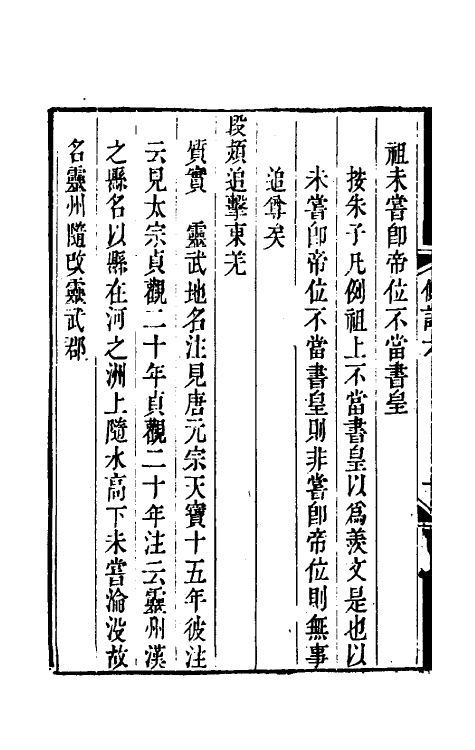 祖未嘗卽帝位不當書皇
按朱子凡例祖上不當書皇以爲羨文是也以
未嘗卽帝位不當書皇則非嘗卽帝位則無事
追尊矣
段熲追擊東羌
質實　靈武地名注見唐元宗天寶十五年彼注
云見太宗貞觀二十年貞觀二十年注云靈州漢
之縣名以縣在河之洲上隨水高下未嘗淪没故
名靈州隨改靈武郡